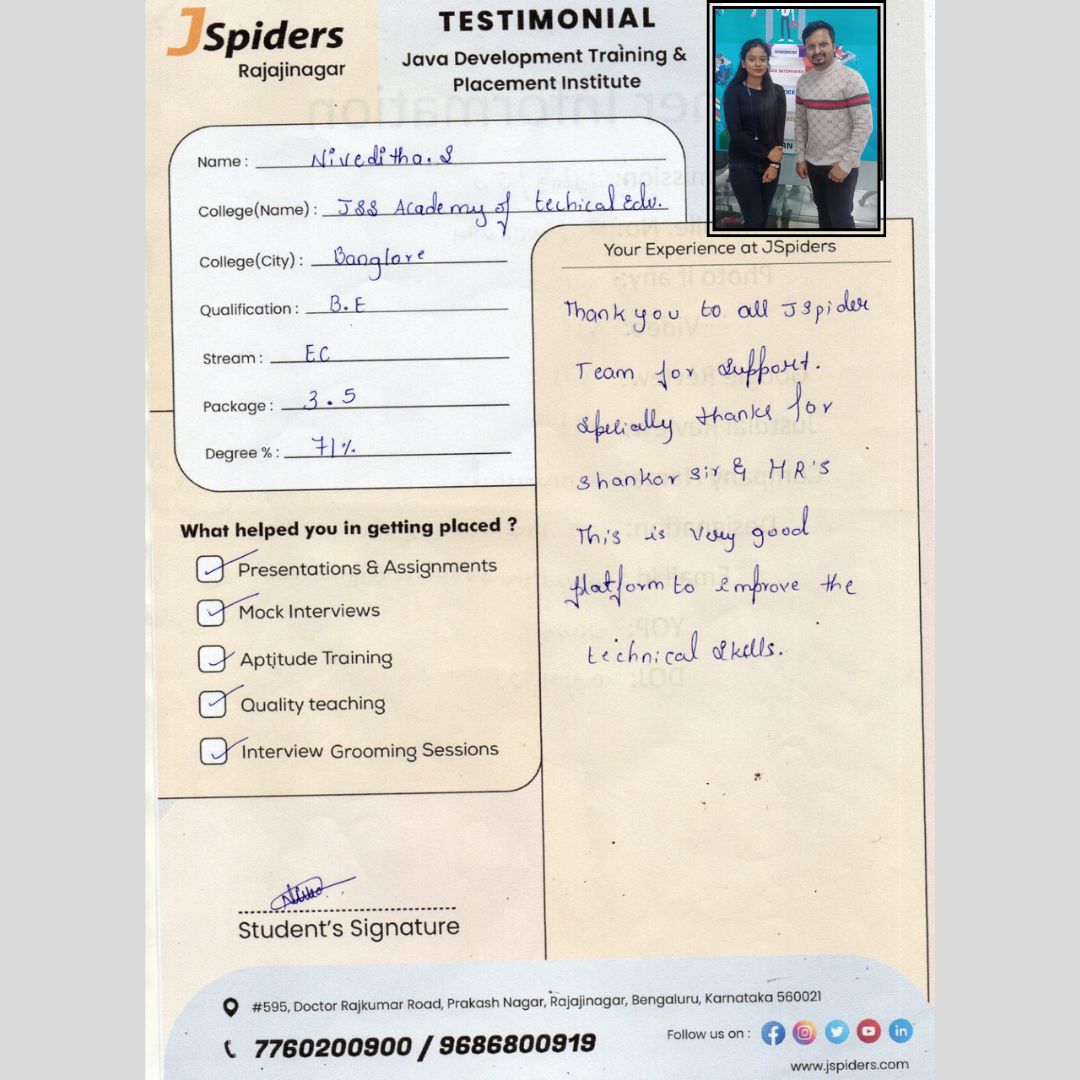 JSpiders
Rajajinagar
TESTIMONIAL
Java Development Training &
Placement Institute
GROOMING
Name : Niveditha. S
College(Name) : JSS Academy of techical Edu.
College(City) : Banglore
Qualification : B.E
Stream : EC
Package : 3.5
Degree % : 71%
What helped you in getting placed ?
Presentations & Assignments
Mock Interviews
Aptitude Training
Quality teaching
Interview Grooming Sessions
Student's Signature
Your Experience at JSpiders
Thank you to all JSpider
Team for Support.
Specially thanks for
Shankar sir & HR's
This is very good
platform to improve the
technical skills.
#595, Doctor Rajkumar Road, Prakash Nagar, Rajajinagar, Bengaluru, Karnataka 560021
7760200900 / 9686800919
Follow us on :
www.jspiders.com